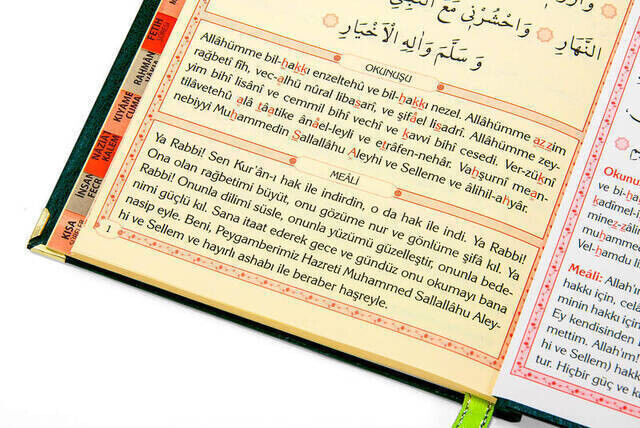 النَّهَارِ وَاحْشُرْنِي مَعَ النَّبِيِّ
وَسَلَّمَ وَاٰلِهِ الْاَخْيَارِ
OKUNUŞU
Allâhümme bil-hakkı enzeltehû ve bil-hakkı nezel. Allâhümme azzim
rağbetî fîh, vec-alhü nûral libasarî, ve şifâel lisadrî. Allâhümme zey-
yim bihî lisânî ve cemmil bihî vechî ve kavvi bihî cesedî. Ver-züknî
tilâvetehû alâ tâatike ânâel-leyli ve etrâfen-nehâr. Vahşurnî mean-
nebiyyi Muhammedin Sallallâhu Aleyhi ve Selleme ve âlihil-ahyâr.
MEÂLİ
Ya Rabbi! Sen Kur’ân-ı hak ile indirdin, o da hak ile indi. Ya Rabbi!
Ona olan rağbetimi büyüt, onu gözüme nur ve gönlüme şifâ kıl. Ya
Rabbi! Onunla dilimi süsle, onunla yüzümü güzelleştir, onunla bede-
nimi güçlü kıl. Sana itaat ederek gece ve gündüz onu okumayı bana
nasip eyle. Beni, Peygamberimiz Hazreti Muhammed Sallallâhu Aley-
hi ve Sellem ve hayırlı ashabı ile beraber haşreyle.
1
FETİH
RAHMÂN
KIYÂME
CUMA
NÂZİÂT
KALEM
İNSAN
FECR
KISA
Okunu
ve bi-ha
kadîmel-i
minez-zâli
Vel-hamdu li
Meâli: Allah'ı
hakkı için, cel
minin hakkı i
Ey kendisinden
mettim. Allah'ım!
hi ve Sellem) hakk
tur. Hiçbir güç ve k